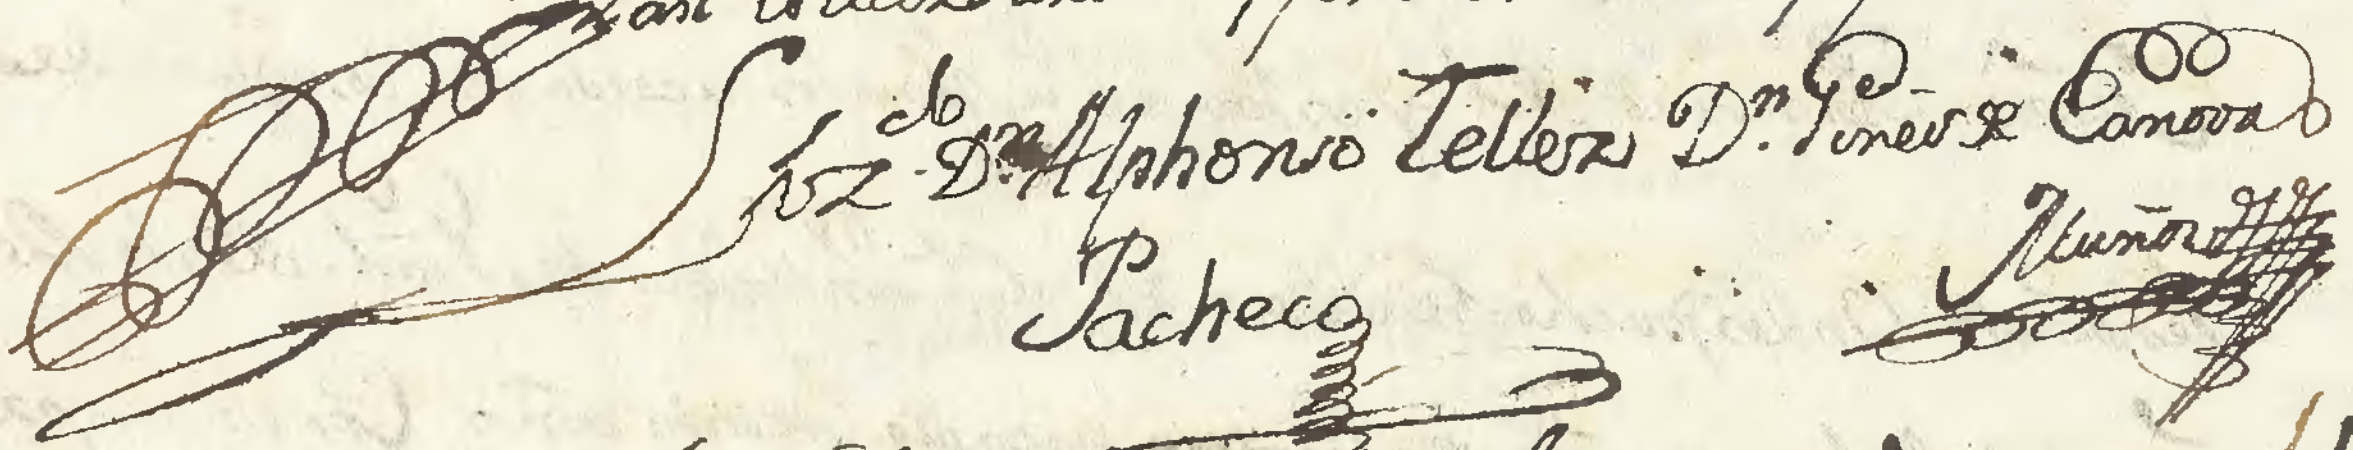 Lizdo. Dn. Alphonso Tellez
Pacheco
Dn. Gines de Canovas
Muñoz